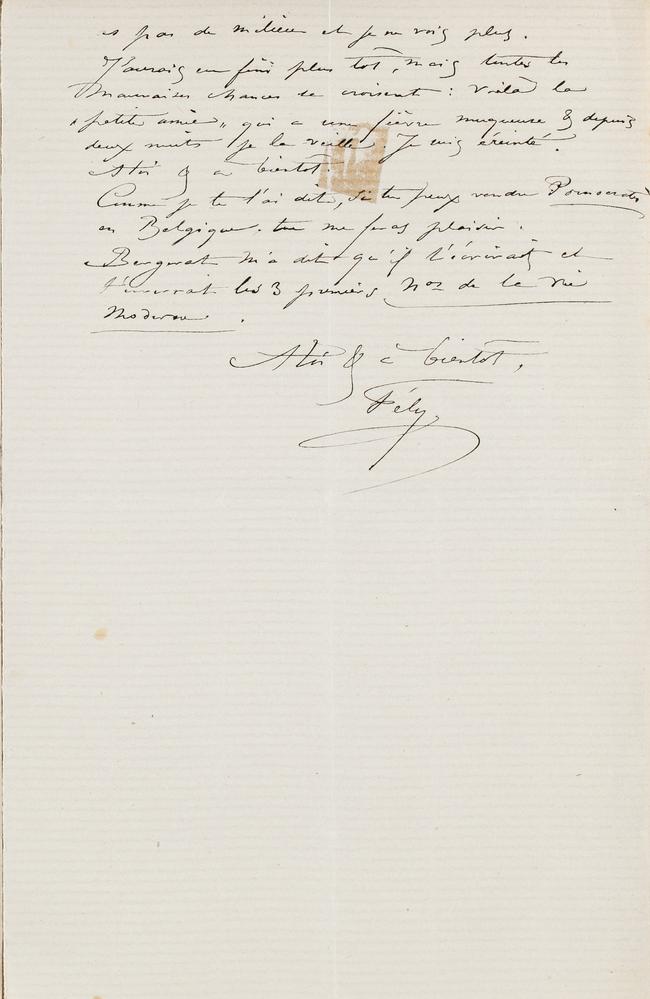 a pas de milieu et je ne vois plus.
J'aurais eu fini plus tôt, mais toutes les
mauvaises chances se croisent : voilà la
« petite amie » qui a une fièvre muqueuse & depuis
deux nuits je la veille. Je suis éreinté.
A toi & à bientôt.
Comme je te l'ai dit, si tu peux vendre Pornocratès
en Belgique. tu me feras plaisir.
Bergerat m'a dit qu'il t'écrirait et
t'enverrait les 3 premiers nos de la Vie
Moderne.
A toi & à bientôt,
Fély